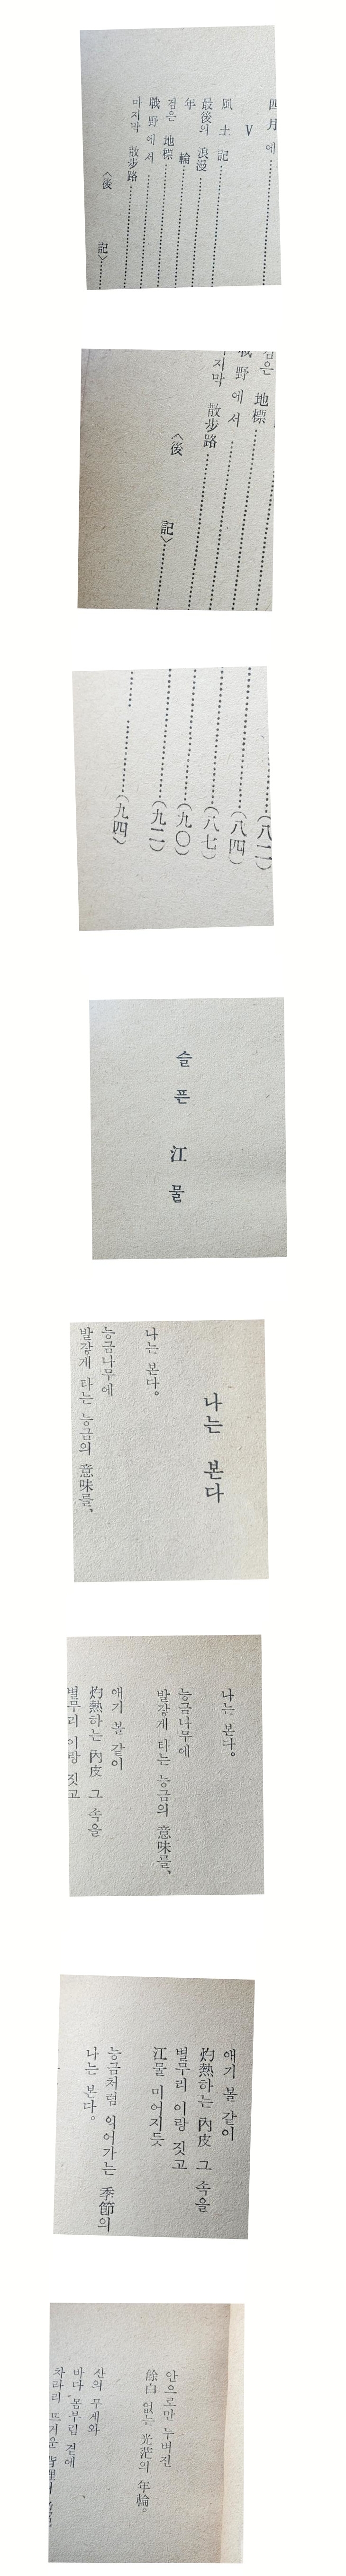 四月에
V
風土記
最後의 浪漫
年輪
검은 地標
戰野에서
마지막 散步路
〈後記〉
검은 地標
戰野에서
지막 散步路
〈後記〉
(八二)
(八四)
(八七)
(九〇)
(九二)
(九四)
슬픈 江물
나는 본다
나는 본다。
능금나무에
발갛게 타는 능금의 意味를、
나는 본다。
능금나무에
발갛게 타는 능금의 意味를、
애기 볼 같이
灼熱하는 內皮 그 속을
별무리 이랑 짓고
애기 볼 같이
灼熱하는 內皮 그 속을
별무리 이랑 짓고
江물 미어지듯
능금처럼 익어가는 季節의
나는 본다。
안으로만 누벼진
餘白 없는 光茫의 年輪。
산의 무게와
바다 몸부림 곁에
차라리 뜨거운